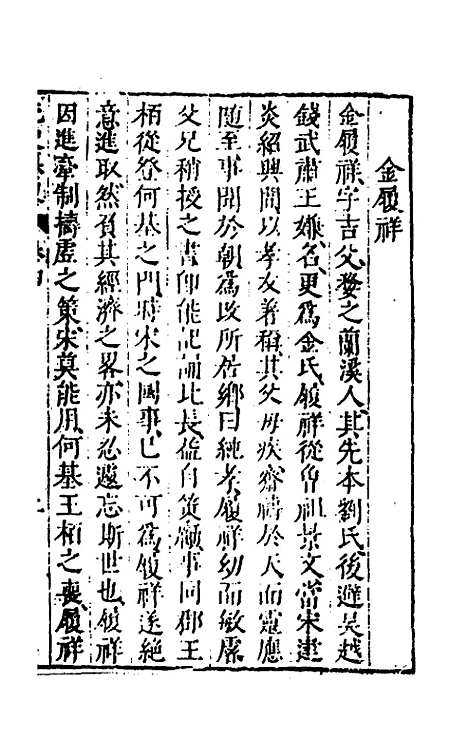 金履祥
金履祥字吉父婺之蘭溪人其先本劉氏後避吳越
錢武肅王嫌名更爲金氏履祥從曾祖景文當宋建
炎紹興間以孝友著稱其父母疾齋禱於天而靈應
隨至事聞於朝爲改所居鄉曰純孝履祥幼而敏睿
父兄稍授之書卽能記誦比長益自策勵事同郡王
栢從登何基之門時宋之國事已不可爲履祥遂絶
意進取然負其經濟之畧亦未忍遽忘斯世也履祥
因進牽制擣虛之策宋莫能用何基王栢之喪履祥